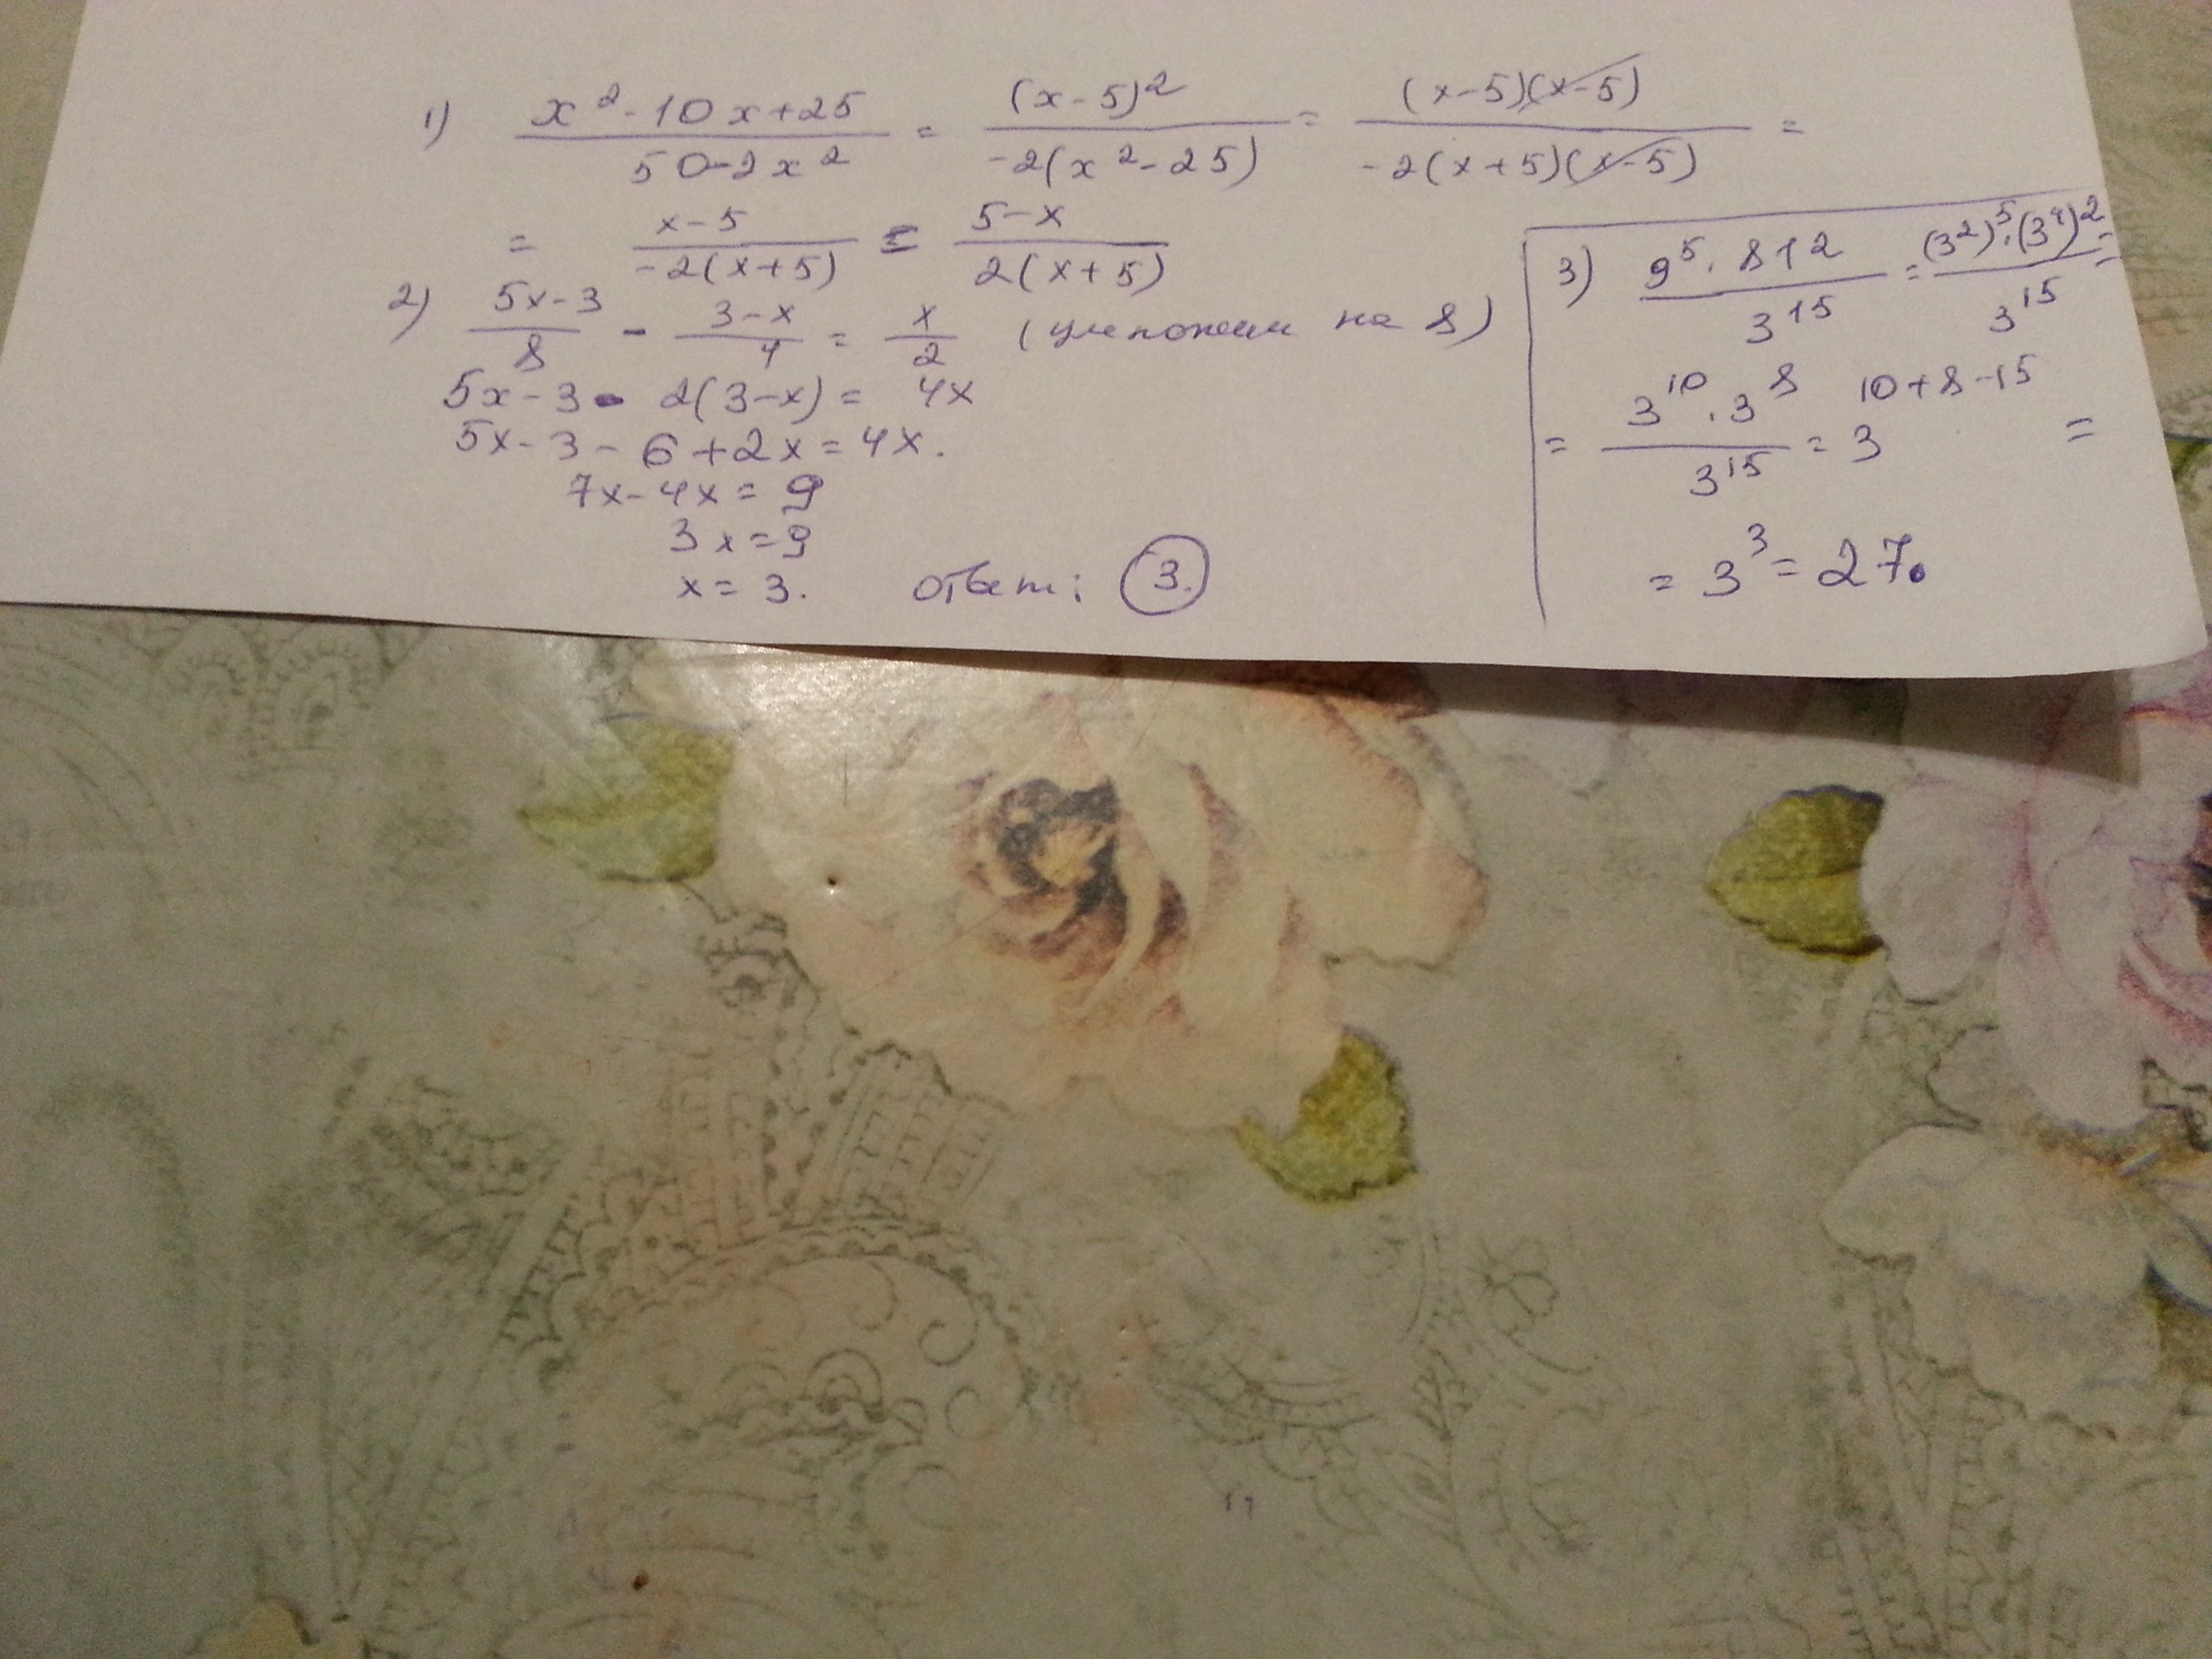 1) (x² - 10x + 25)/(50 - 2x²) = (x - 5)²/(-2(x² - 25)) = (x - 5)(x - 5)/(-2(x + 5)(x - 5)) =
= (x - 5)/(-2(x + 5)) = (5 - x)/(2(x + 5))
2) (5x - 3)/8 - (3 - x)/4 = x/2 (умножим на 8)
5x - 3 - 2(3 - x) = 4x
5x - 3 - 6 + 2x = 4x.
7x - 4x = 9
3x = 9
x = 3. ответ: 3.
3) (9⁵ · 81²)/3¹⁵ = ((3²)⁵ · (3⁴)²)/3¹⁵ =
= (3¹⁰ · 3⁸)/3¹⁵ = 3¹⁰⁺⁸⁻¹⁵ =
= 3³ = 27.